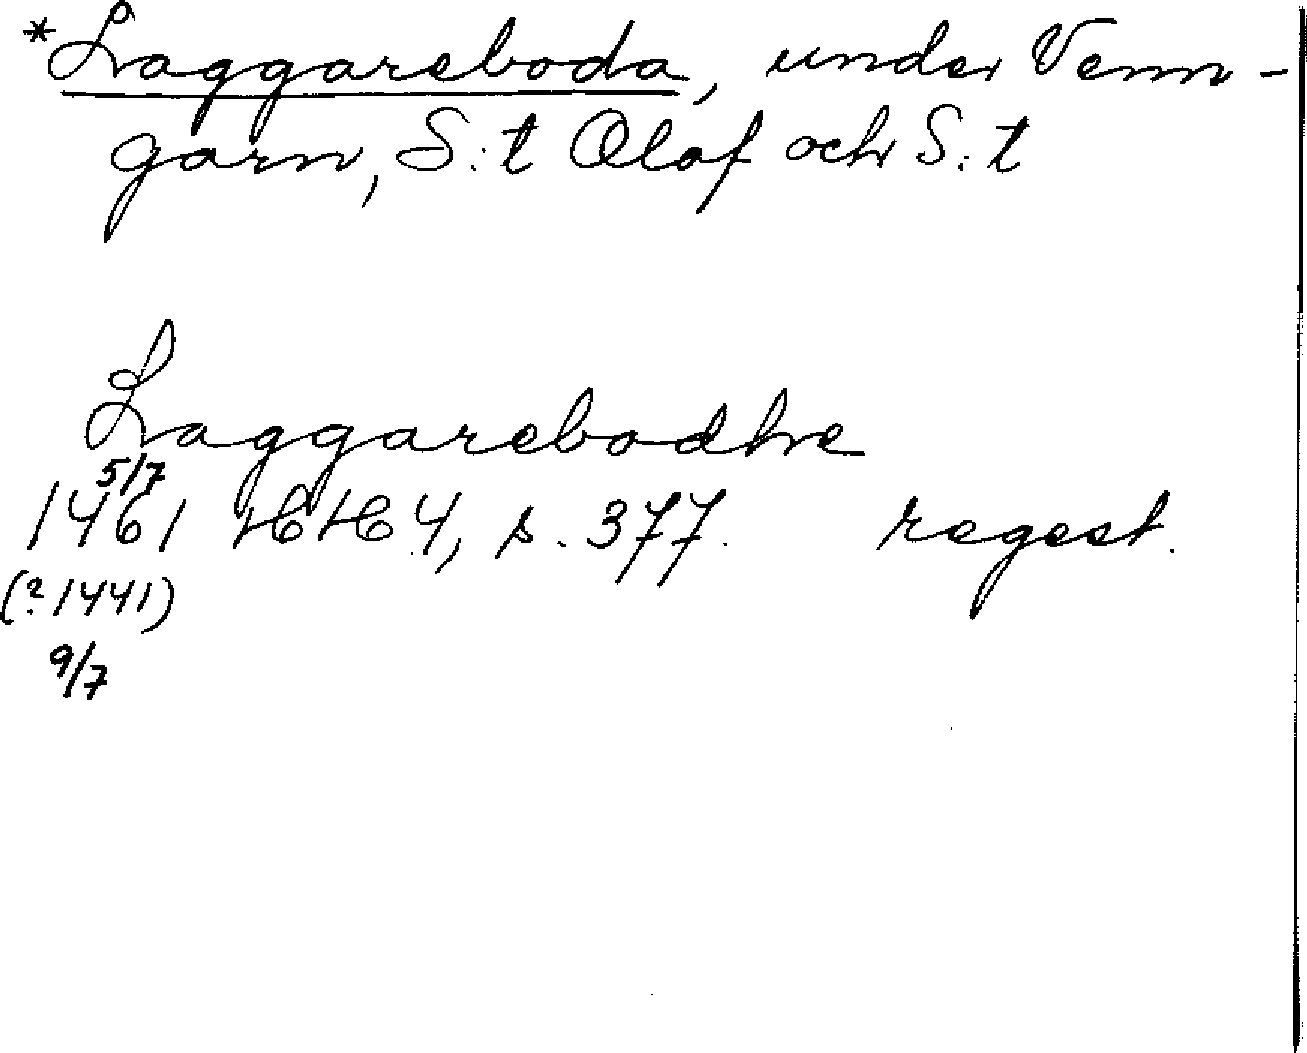 *Laggareboda, under Venn-
garn, S:t Olof och S:t
Laggarebodhe
5/7
1461 HH 4, s. 377. regest.
(? 1441)
9/7